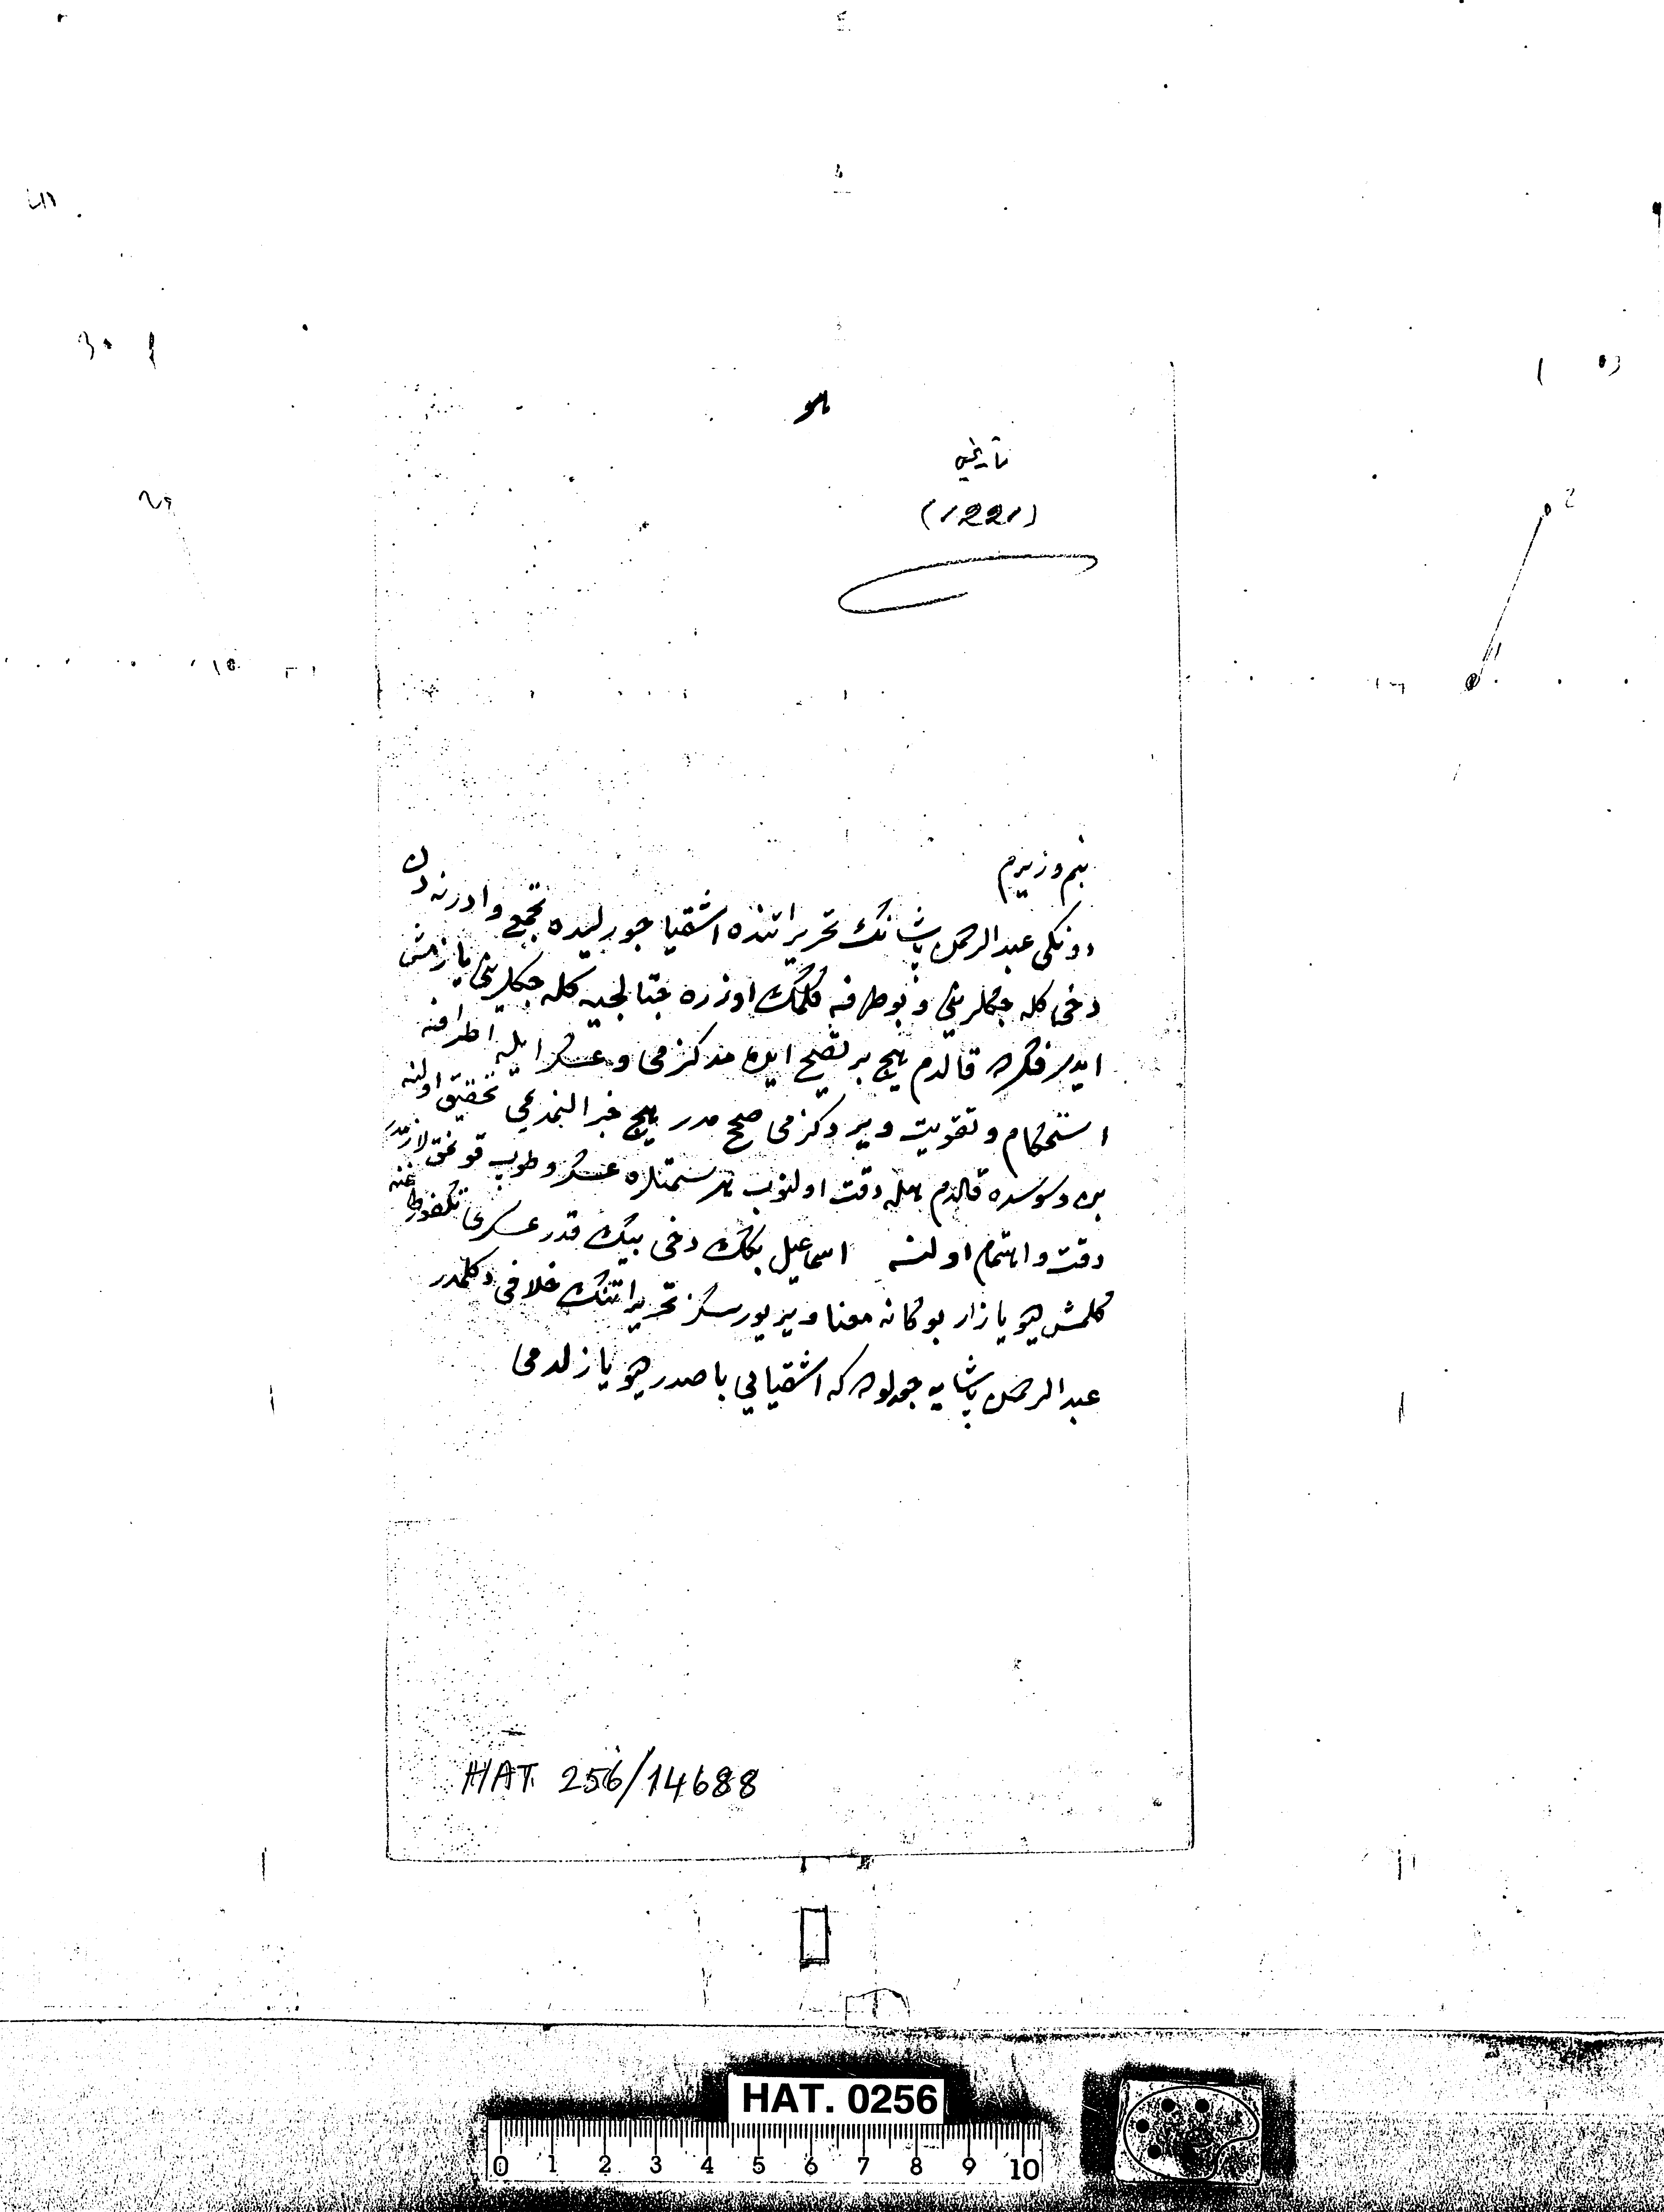 هو
تاریخی
(1221)
بنم وزیرم
دونكی عبدالرحمن پاشانك تحریراتنده اشقیا جورلیده تجمع و ادرنه دن
دخی كله جكلرینی و بوطرفه كلمك اوزره چتالجیه كله جكلرینی یازمش
ایدی فكره قالدم هیچ بر تصحیح ایده مدكزمی و عسكر ایله اطرافنه
استحكام و تقویت ویردكزمی صحیح مدر هیچ خبر النمدیمی تحقیق اولنه
بن وسوسه ده قالدم هله دقت اولنوب هر سمتلره عسكر و طوپ قونمق لازمدر
دقت و اهتمام اولنه اسماعیل بكك دخی بیك قدر عسكری تكفورطاغنه
كلمش دیو یازار بوكا نه معنا ویریورسكز تحریراتنك خلافی دكلمدر
عبدالرحمن پاشایه جورلوده كه اشقیایی باصدر دیو یازلدمی
HAT. 256/14688
HAT. 0256
0 1 2 3 4 5 6 7 8 9 10